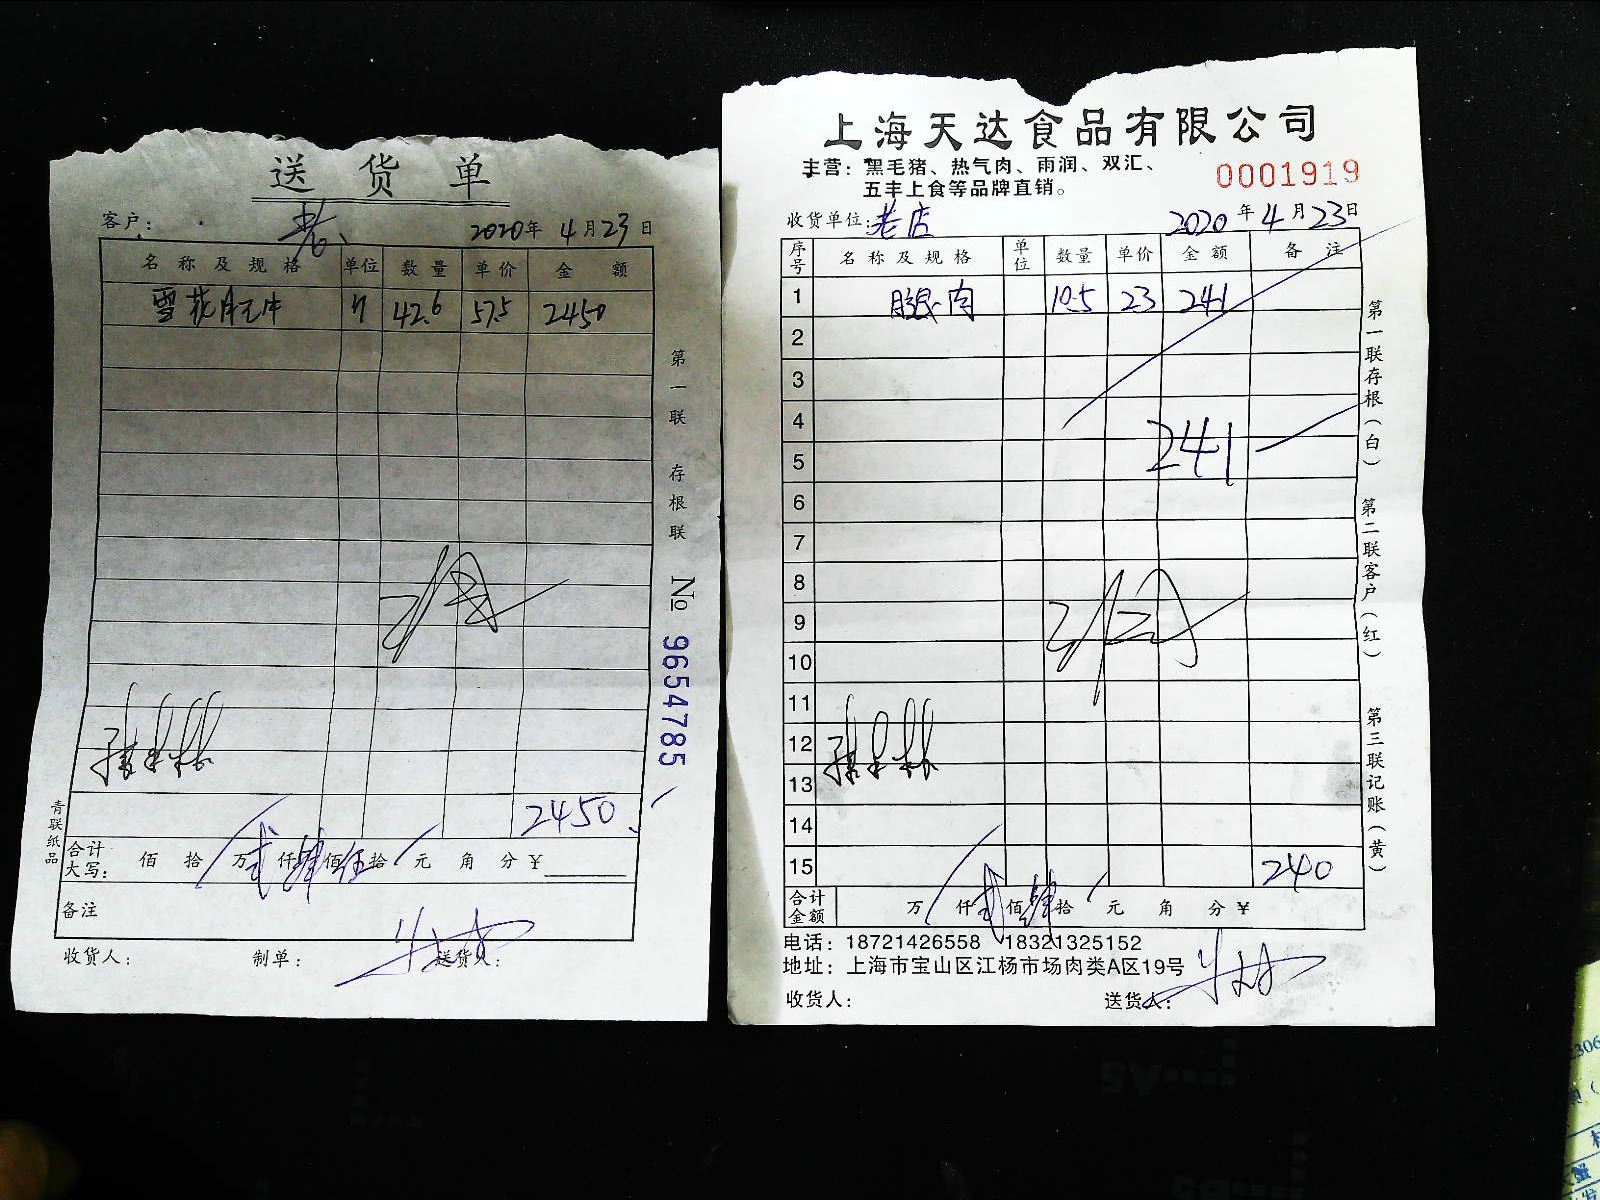 送货单
客户： 老 2020年 4月23日
名称及规格 单位 数量 单价 金额
雪花 42.6 57.5 2450
第一联 存根联
№ 9654785
2450
青联纸品
合计大写： 佰 拾 万 贰 仟 肆 佰 伍 拾 元 角 分 ￥
备注
收货人： 制单： 送货人：
上海天达食品有限公司
主营：黑毛猪、热气肉、雨润、双汇、
五丰上食等品牌直销。
0001919
收货单位：老店 2020年 4月23日
序号 名称及规格 单位 数量 单价 金额 备注
1 腿肉 10.5 23 241
2
3
4
241
5
6
7
8
9
10
11
12
13
14
15 240
合计金额 万 仟 贰 佰 肆 拾 元 角 分 ￥
电话：18721426558 18321325152
地址：上海市宝山区江杨市场肉类A区19号
收货人： 送货人：
第一联存根（白） 第二联客户（红） 第三联记账（黄）